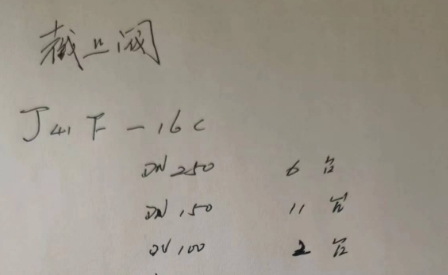 截止阀
J41F-16C
DN250 6台
DN150 11台
DN100 2台